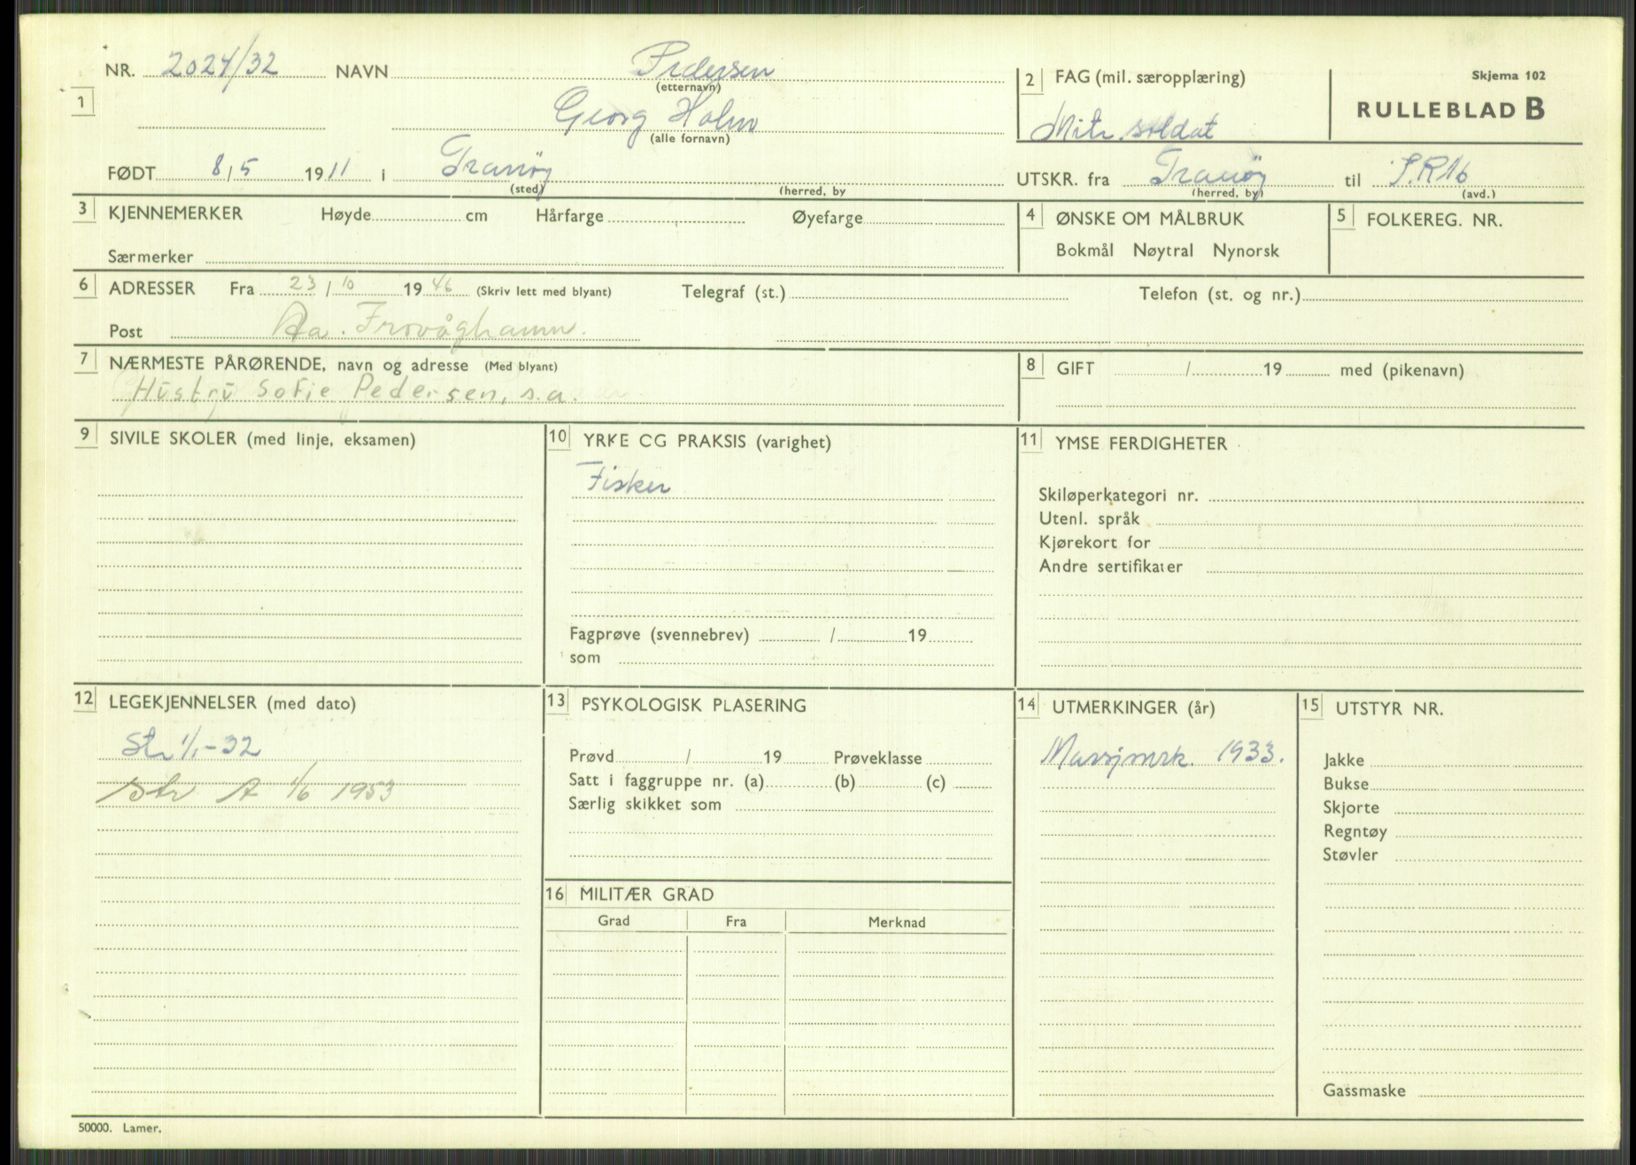 NR. 2024/32 NAVN Pedersen
(etternavn)
2 FAG (mil. særopplæring)
Skjema 102
RULLEBLAD B
1
Georg Holm
(alle fornavn)
Mitr. soldat
FØDT 8/5 1911 i Tranøy
(sted) (herred, by
UTSKR. fra Tranøy til I.R16
(herred, by) (avd.)
3 KJENNEMERKER Høyde cm Hårfarge Øyefarge
Særmerker
4 ØNSKE OM MÅLBRUK
Bokmål Nøytral Nynorsk
5 FOLKEREG. NR.
6 ADRESSER Fra 23/10 1946 (Skriv lett med blyant) Telegraf (st.) Telefon (st. og nr.)
Post Aa. Frovåghamn.
7 NÆRMESTE PÅRØRENDE, navn og adresse (Med blyant)
Hustru Sofie Pedersen, s.a.
8 GIFT / 19 med (pikenavn)
9 SIVILE SKOLER (med linje, eksamen)
10 YRKE CG PRAKSIS (varighet)
Fisker
Fagprøve (svennebrev) / 19
som
11 YMSE FERDIGHETER
Skiløperkategori nr.
Utenl. språk
Kjørekort for
Andre sertifikater
12 LEGEKJENNELSER (med dato)
Str 1/1-32
Str A 1/6 1953
13 PSYKOLOGISK PLASERING
Prøvd / 19 Prøveklasse
Satt i faggruppe nr. (a) (b) (c)
Særlig skikket som
14 UTMERKINGER (år)
Marsjmrk. 1933.
15 UTSTYR NR.
Jakke
Bukse
Skjorte
Regntøy
Støvler
Gassmaske
16 MILITÆR GRAD
Grad Fra Merknad
50000. Lamer.